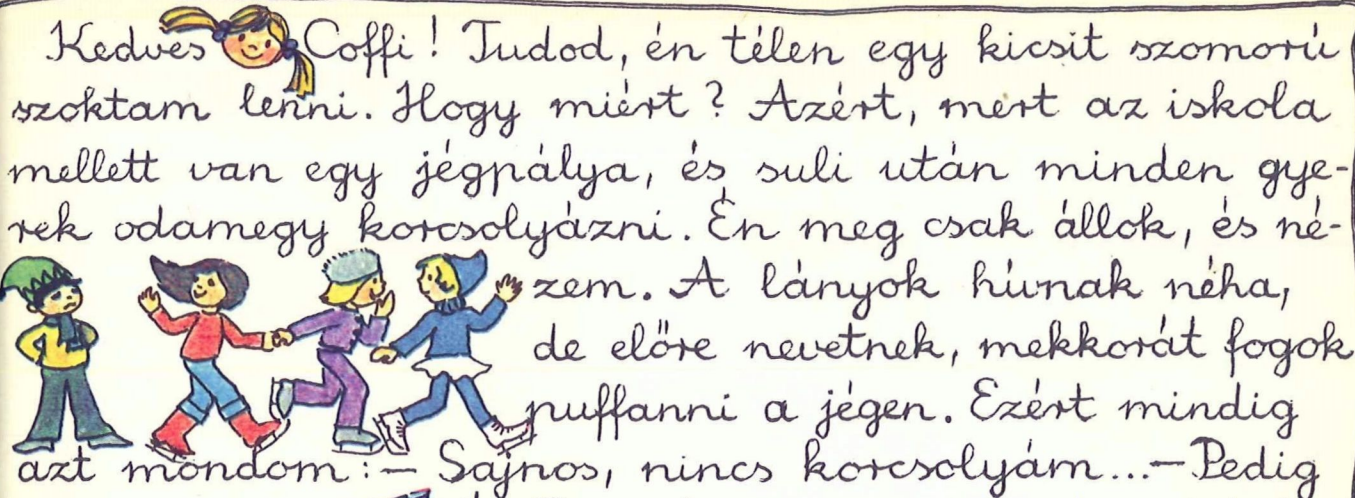 Kedves Coffi! Tudod, én télen egy kicsit szomorú
szoktam lenni. Hogy miért? Azért, mert az iskola
mellett van egy jégpálya, és suli után minden gye-
rek odamegy korcsolyázni. Én meg csak állok, és né-
zem. A lányok hívnak néha,
de előre nevetnek, mekkorát fogok
puffanni a jégen. Ezért mindig
azt mondom:— Sajnos, nincs korcsolyám...— Pedig